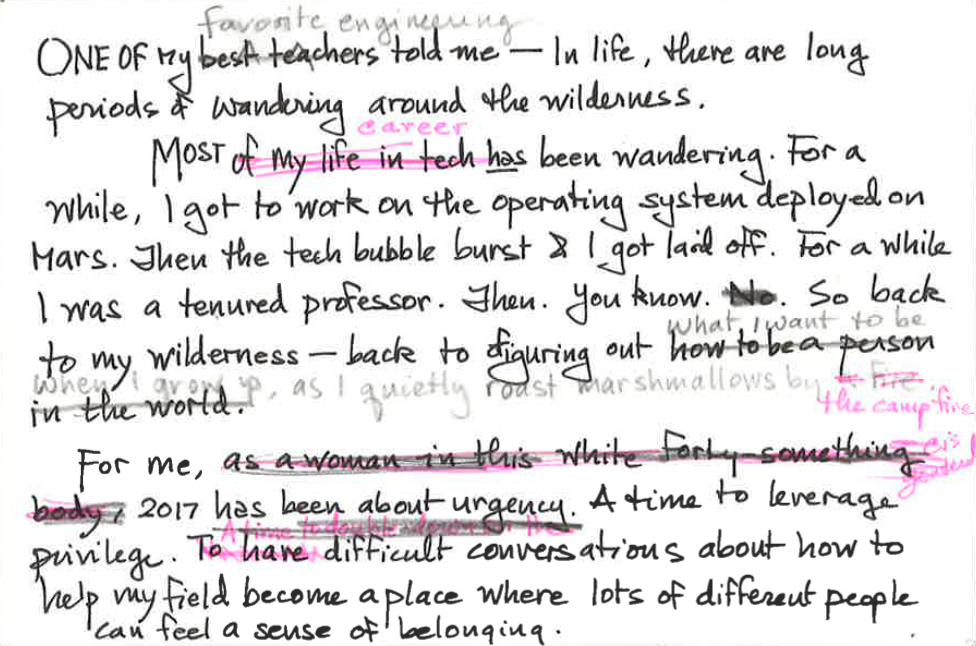 favorite engineering
ONE OF my best teachers told me — In life, there are long
periods of wandering around the wilderness.
career
MOST of my life in tech has been wandering. For a
while, I got to work on the operating system deployed on
Mars. Then the tech bubble burst & I got laid off. For a while
I was a tenured professor. Then. You know. No. So back
what I want to be
to my wilderness — back to figuring out how to be a person
when I grow up, as I quietly roast marshmallows by a fire.
in the world. the camp fire
cis
For me, as a woman in this white forty-something
gendered
body, 2017 has been about urgency. A time to leverage
A time to double-down on the
privilege. To have difficult conversations about how to
help my field become a place where lots of different people
can feel a sense of belonging.